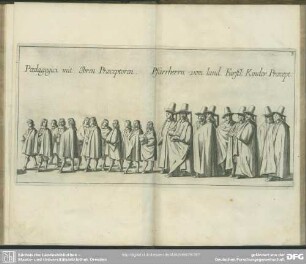 Pædagogici mit Ihren Præceptorn. Pfarrherrn vom land. Fürstl. Kinder Præcept.
Sächsische Landesbibliothek -
Staats- und Universitätsbibliothek Dresden
gefördert von der
Deutschen Forschungsgemeinschaft
DFG